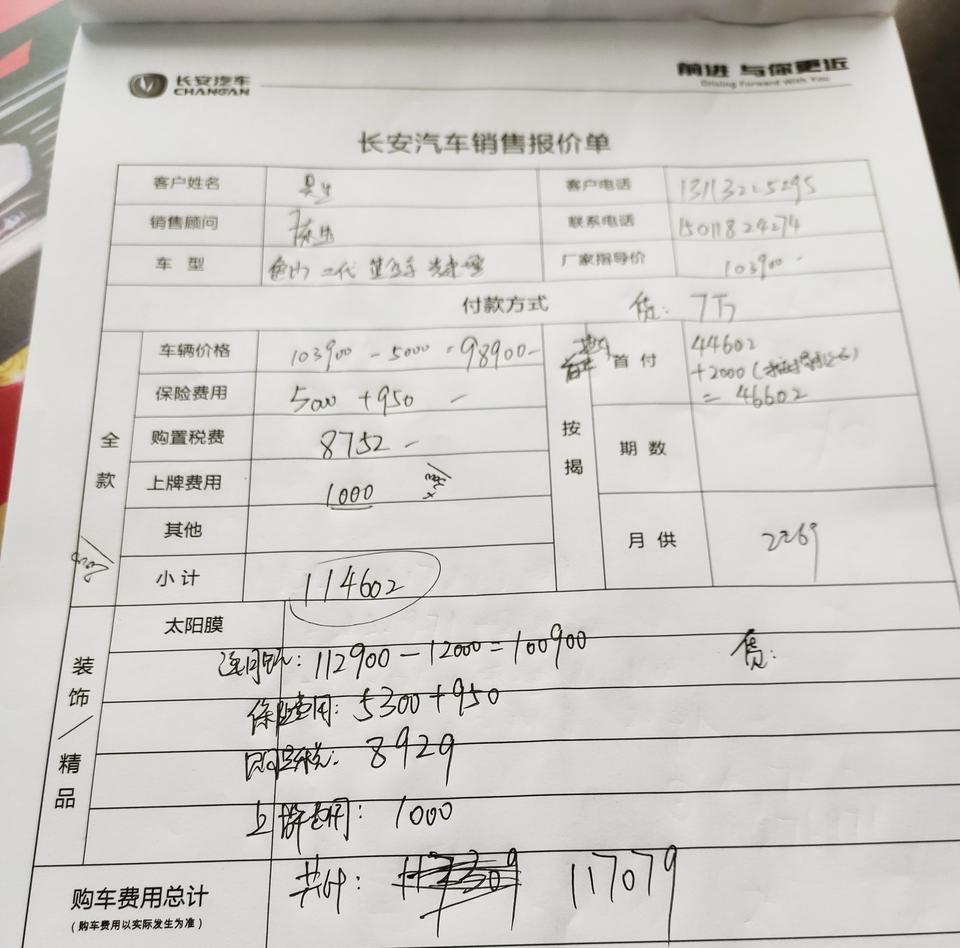 长安汽车
CHANGAN
前进 与你更近
Driving Forward With You
长安汽车销售报价单
客户姓名 吴生 客户电话 13113225295
销售顾问 联系电话 15011824274
车 型 二代 厂家指导价 103900 -
付款方式 贷: 7万
全款
车辆价格 103900 - 5000 = 98900 -
保险费用 5000 + 950 -
购置税费 8752 -
上牌费用 1000
其他
小计 114602
按揭
首付 44602
+2000
= 46602
期数
月供 2269
装饰/精品
太阳膜
112900 - 12000 = 100900 贷:
保险费用: 5300 + 950
购置税: 8929
上牌费用: 1000
购车费用总计 共计: 117079
(购车费用以实际发生为准)